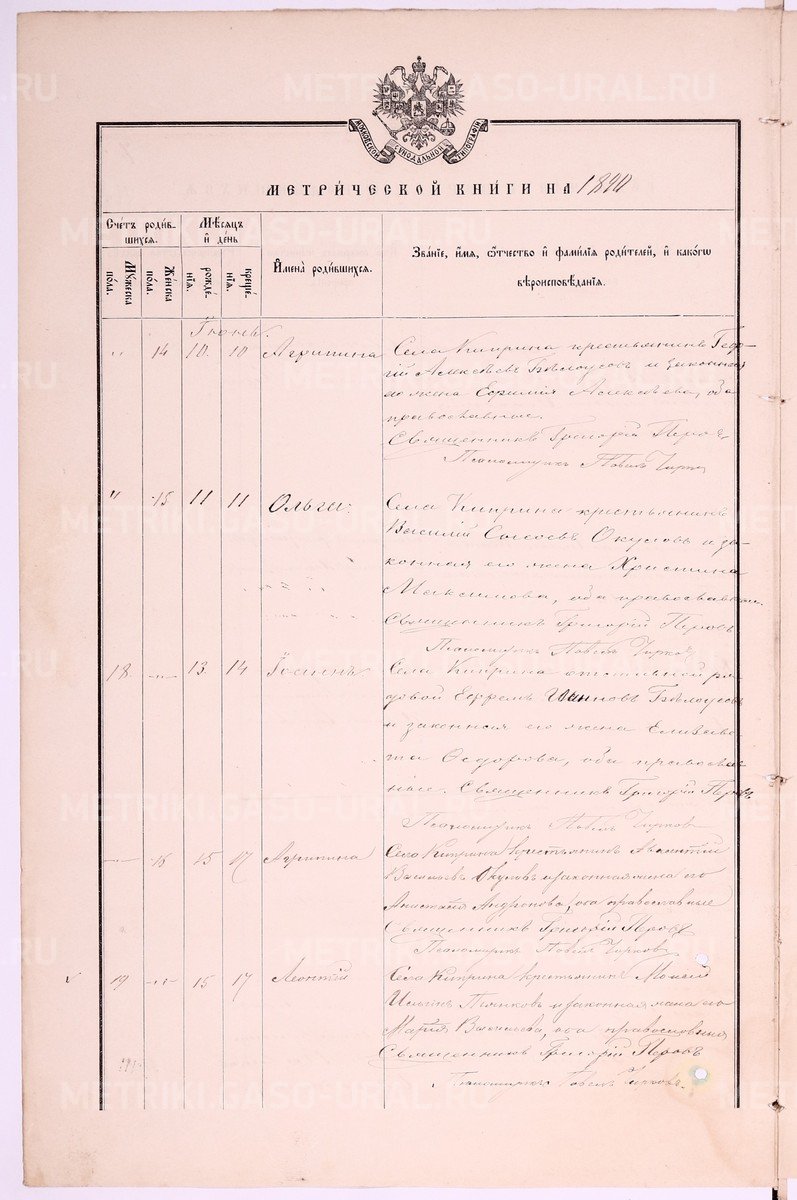 METRIKI.GASO-URAL.RU
МОСКОВСКОЙ СѴНОДАЛЬНОЙ ТИПОГРАФІИ
МЕТРИ́ЧЕСКОЙ КНИ́ГИ НА 1890
Сче́тъ роди́в-
шихся.
Мѣ́сяцъ
и҆ де́нь
И҆мена̀ роди́вшихся.
Зва́нїе, и҆́мя, ѻ҆́тчество и҆ фами́лїя роди́телей, и҆ како́гѡ
вѣроисповѣ́данїя.
Мꙋ́жеска
по́ла.
Же́нска
по́ла.
рожде́-
нїя.
креще́-
нїя.
Іюнь.
" 14 10. 10 Агрипина Села Киприна крестьянинъ Геор-
гій Алексѣевъ Бѣлоусовъ и законная
его жена Евфимія Алексѣева, оба
православные.
Священникъ Григорій Перовъ
Псаломщикъ Павелъ Чирковъ
" 15 11 11 Ольга. Села Киприна крестьянинъ
Василій Окуловъ и за-
конная его жена Христина
Максимова, оба православные.
Священникъ Григорій Перовъ
Псаломщикъ Павелъ Чирковъ
18 -"- 13. 14 Іоаннъ Села Киприна отставной ря-
довой Ефремъ Ивановъ Бѣлоусовъ
и законная его жена Елизаве-
та Ѳедорова, оба православ-
ные. Священникъ Григорій Перовъ
Псаломщикъ Павелъ Чирковъ
-"- 16 15 17 Агрипина Села Киприна крестьянинъ
Васильевъ Окуловъ и законная жена его
Анастасія Андронова, оба православные
Священникъ Григорій Перовъ
Псаломщикъ Павелъ Чирковъ
19 -"- 15 17 Леонтій Села Киприна крестьянинъ Моисей
Ильинъ Пьянковъ и законная жена его
Марія Васильева, оба православные
Священникъ Григорій Перовъ
Псаломщикъ Павелъ Чирковъ.